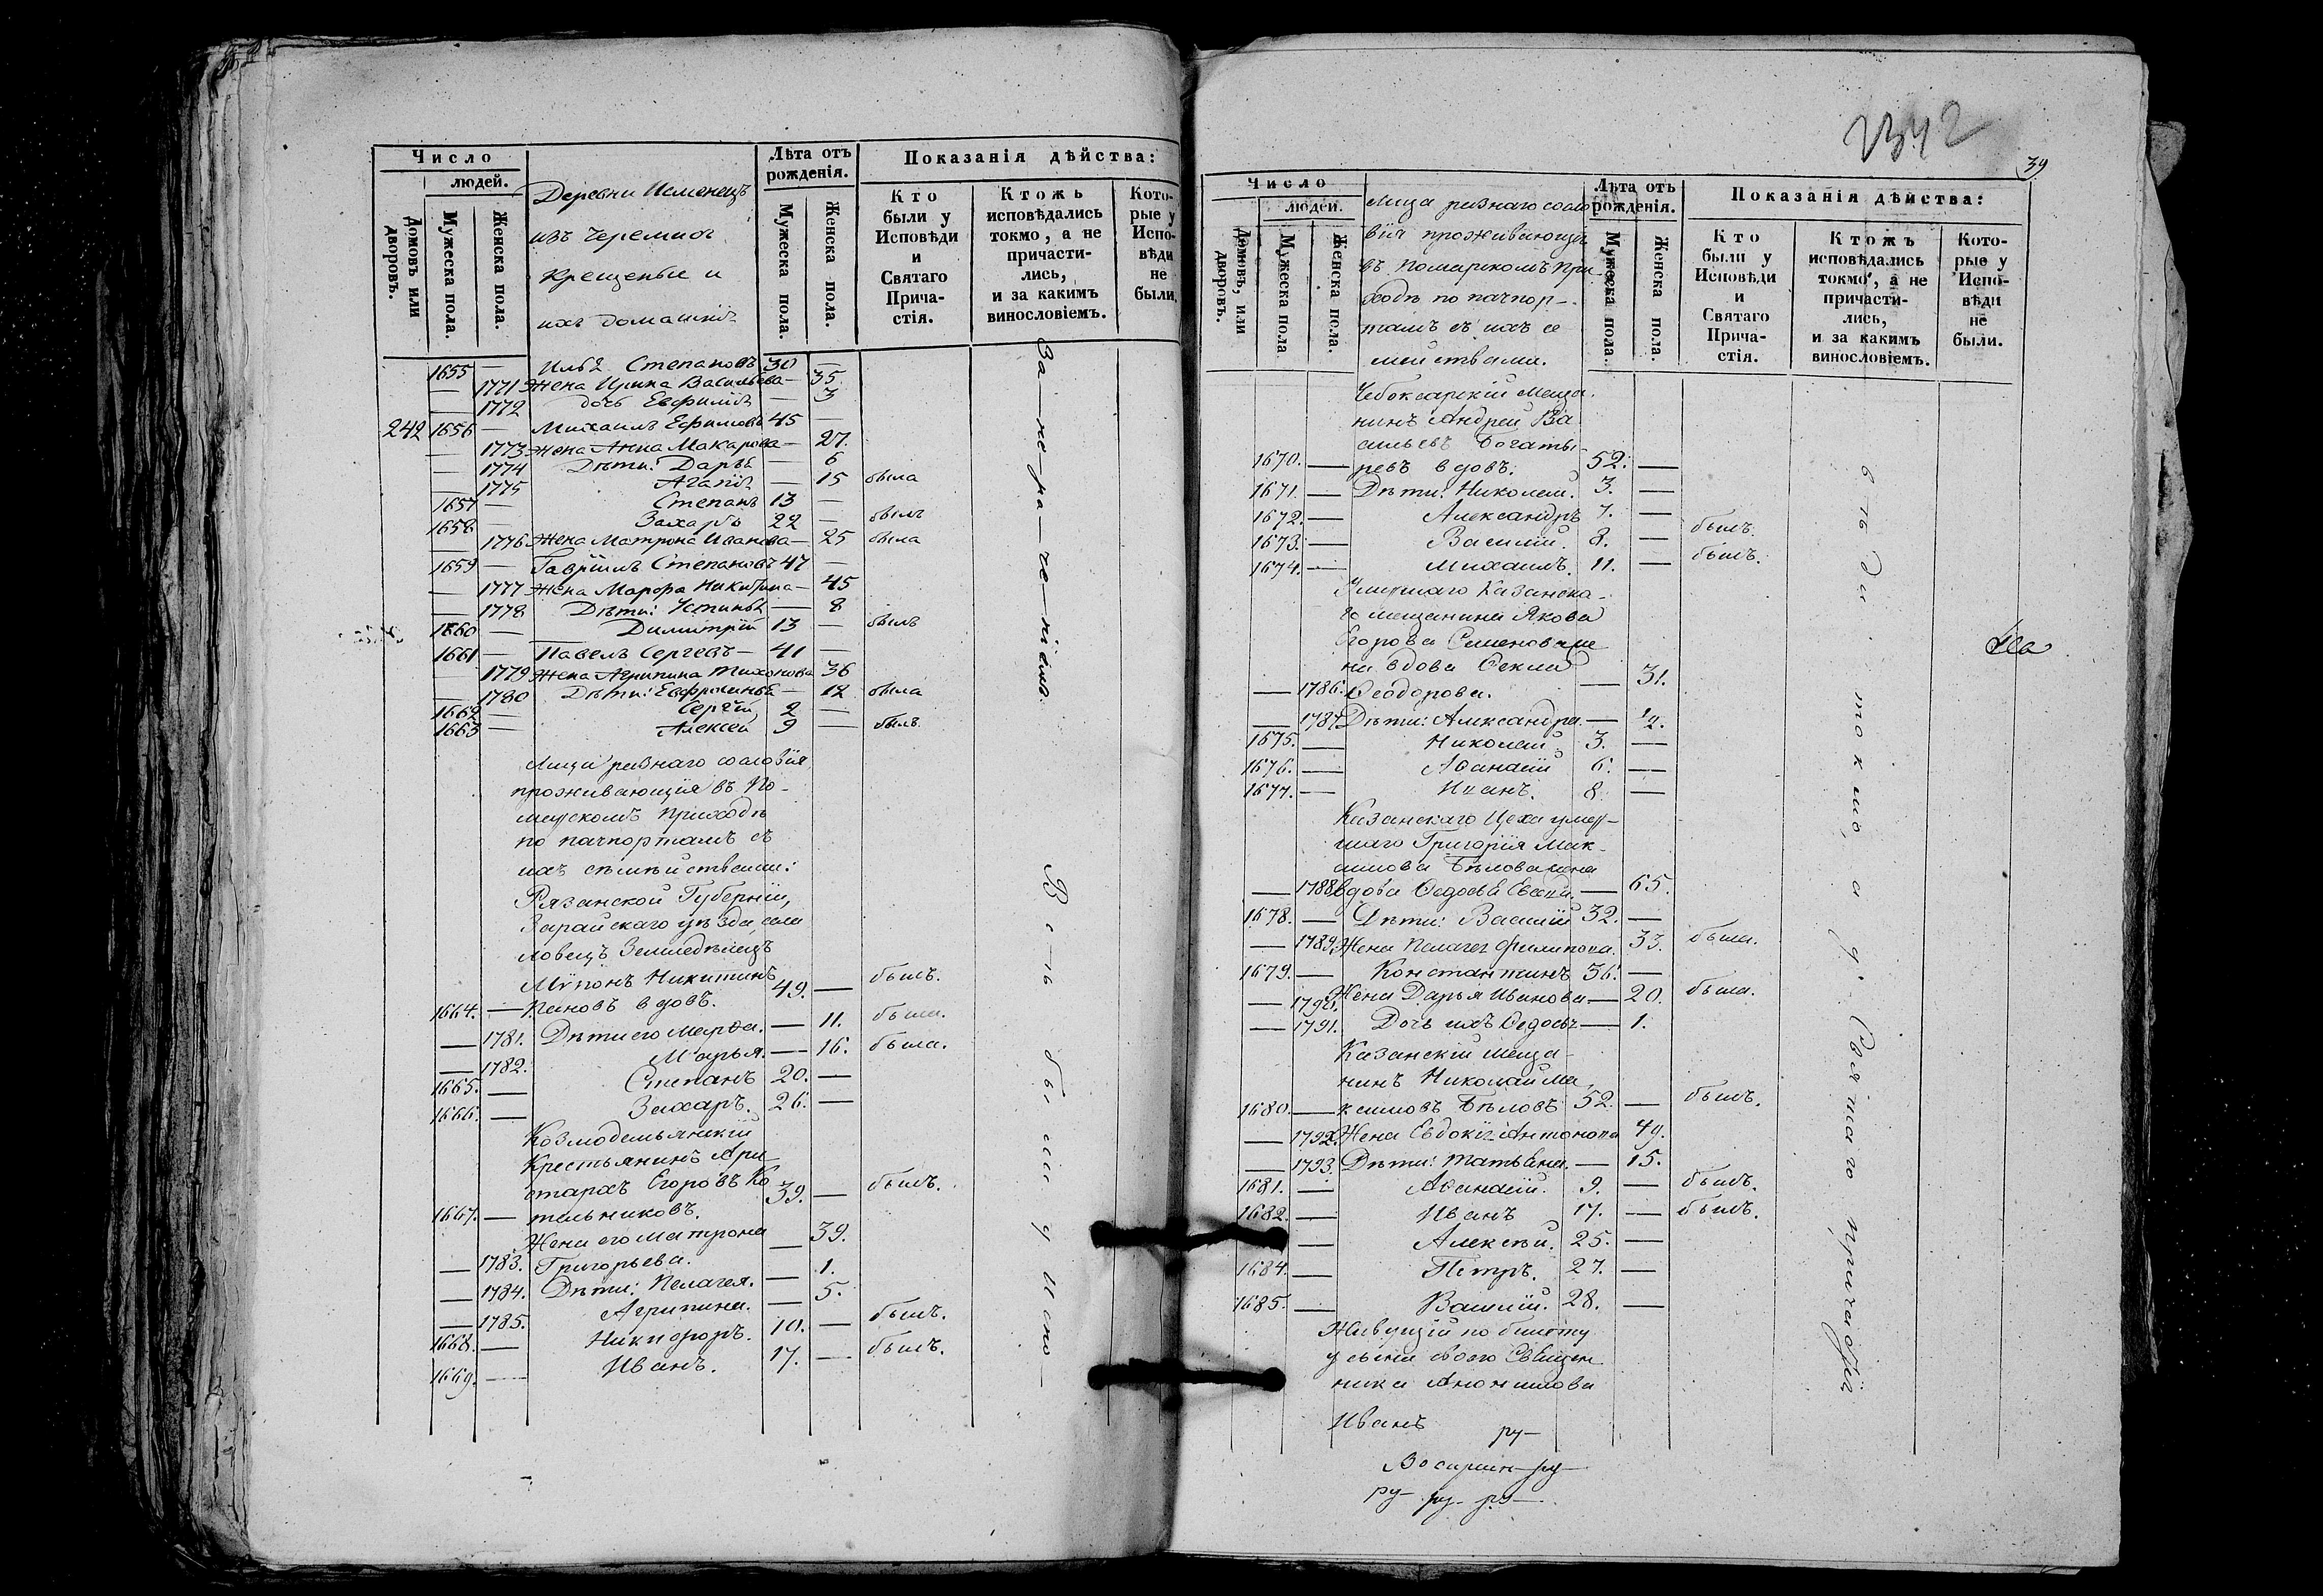 Число
людей.
Домовъ или дворовъ.
Мужеска пола.
Женска пола.
Деревни Исменецъ
изъ Черемисъ
крещеные и
ихъ домашніе
Лѣта отъ рожденія.
Мужеска пола.
Женска пола.
Показанія дѣйства:
Кто были у Исповѣди и Святаго Прича-стія.
Ктожъ исповѣдались токмо, а не причасти-лись, и за какимъ винословіемъ.
Кото-рые у Испо-вѣди не были,
1655 — Илья Степановъ 30 —
— 1771 Жена Ирина Васильева — 35.
— 1772 дочь Евфимія — 3
242 1656 — Михаилъ Ефимовъ 45 —
— 1773 Жена Анна Макарова — 27.
— 1774 Дѣти: Дарья — 6
— 1775 Агапія — 15 была
1657 — Степанъ 13 —
1658 — Захаръ 22 — былъ
— 1776 Жена Матрона Иванова — 25 была
1659 — Гавріилъ Степановъ 47 —
— 1777 Жена Марфа Никитина — 45
— 1778 Дѣти: Устинья — 8
1660 — Димитрій 13 — былъ
1661 — Павелъ Сергеевъ — 41 —
— 1779 Жена Агрипина Тихонова 36
— 1780 Дѣти: Евфросинья — 12 была
1662 — Сергѣй 2 —
1663 — Алексей 9 — былъ
Лица разнаго сословія
проживающія въ По-
марскомъ приходѣ
по пачпортамъ съ
ихъ сѣмѣйствами:
Рязанской Губерніи,
Зарайскаго уѣзда, села
Ловецъ Земледѣлецъ
Мѵронъ Никитинъ
1664. — Пановъ вдовъ. 49. — былъ.
— 1781. Дѣти его Марѳа. — 11. была.
— 1782. Марья. — 16. была.
1665. — Степанъ 20. —
1666. — Захаръ. 26. —
Козмодемьянскій
Крестьянинъ Ари-
стархъ Егоровъ Ко
1667. — тельниковъ. 39. — былъ.
Жена его Матрона
— 1783. Григорьева. — 39.
— 1784. Дѣти: Пелагея. — 1.
— 1785. Агрипина. — 5.
1668. — Никифоръ. 10. — былъ.
1669. — Иванъ. 17. — былъ.
За — не — ра — че — ніемъ.
Всѣ были у Испо —
2342
39
Число
людей.
Домовъ, или дворовъ.
Мужеска пола
Женска пола.
Лица разнаго сосло
вія проживающія
въ Помарскомъ При-
ходѣ по пачпор-
тамъ съ ихъ се
мействами.
Лѣта отъ рожденія.
Мужеска пола.
Женска пола.
Показанія дѣйства:
Кто были у Исповѣди и Святаго Прича-стія.
Ктожъ исповѣдались токмо, а не причасти-лись, и за какимъ винословіемъ.
Кото-рые у Испо-вѣди не были.
Чебоксарскій Меща-
нинъ Андрей Ва
сильевъ Богаты-
1670. — ревъ вдовъ. 52. —
1671. — Дѣти: Николай. 3. —
1672. — Александръ 7. —
1673. — Василій. 8. — былъ.
1674. — Михаилъ. 11. — былъ.
Умершаго Казанска-
го мещанина Якова
Егорова Семенова же
на вдова Ѳекла
— 1786. Ѳеодорова. — 31.
— 1787. Дѣти: Александра — ½.
1675. — Николай 3. —
1676. — Аѳанасій 6. —
1677. — Иванъ. 8 —
Казанскаго Цеха умер-
шаго Григорія Мак-
симова Бѣлова жена
— 1788. вдова Ѳедосья — 65.
1678. — Дѣти: Василій 32. —
— 1789. Жена Пелагея Филипова. 33. была.
1679. — Константинъ 36. —
— 1790. Жена Дарья Иванова — 20. была.
— 1791. Дочь ихъ Ѳедосья — 1.
Казанскій меща-
нинъ Николай Ма
1680. — ксимовъ Бѣловъ 52. — былъ.
— 1792. Жена Евдокія Антонова 49.
— 1793. Дѣти: Татьяна. — 15.
1681. — Аѳанасій. 9. — былъ.
1682. — Иванъ 17. — былъ.
— Алексѣй. 25. —
1684. — Петръ. 27. —
1685. — Василій. 28. —
Живущій по билету
у сына своего Священ
ника
Иванъ ру—
ру— ру— ру—
вѣди токмо, а у Святаго причастія